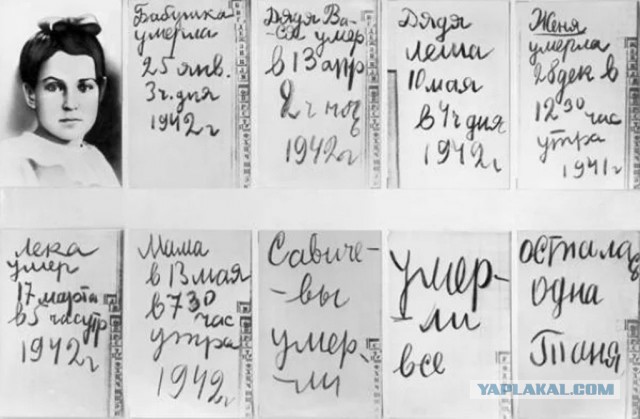 Бабушка
умерла
25 янв.
3 ч. дня
1942 г
Дядя Ва-
ся умер
в 13 апр
2 ч ноч
1942 г
Дядя
Леша
10 мая
в 4 ч дня
1942 г
Женя
умерла
28 дек в
12 30 час
утра
1941 г
Лека
умер
17 марта
в 5 час утр
1942 г
Мама
в 13 мая
в 7 30
час
утра
1942 г
Савиче-
-вы
умер-
-ли
умер-
-ли
все
осталась
одна
Таня
YAPLAKAL.COM